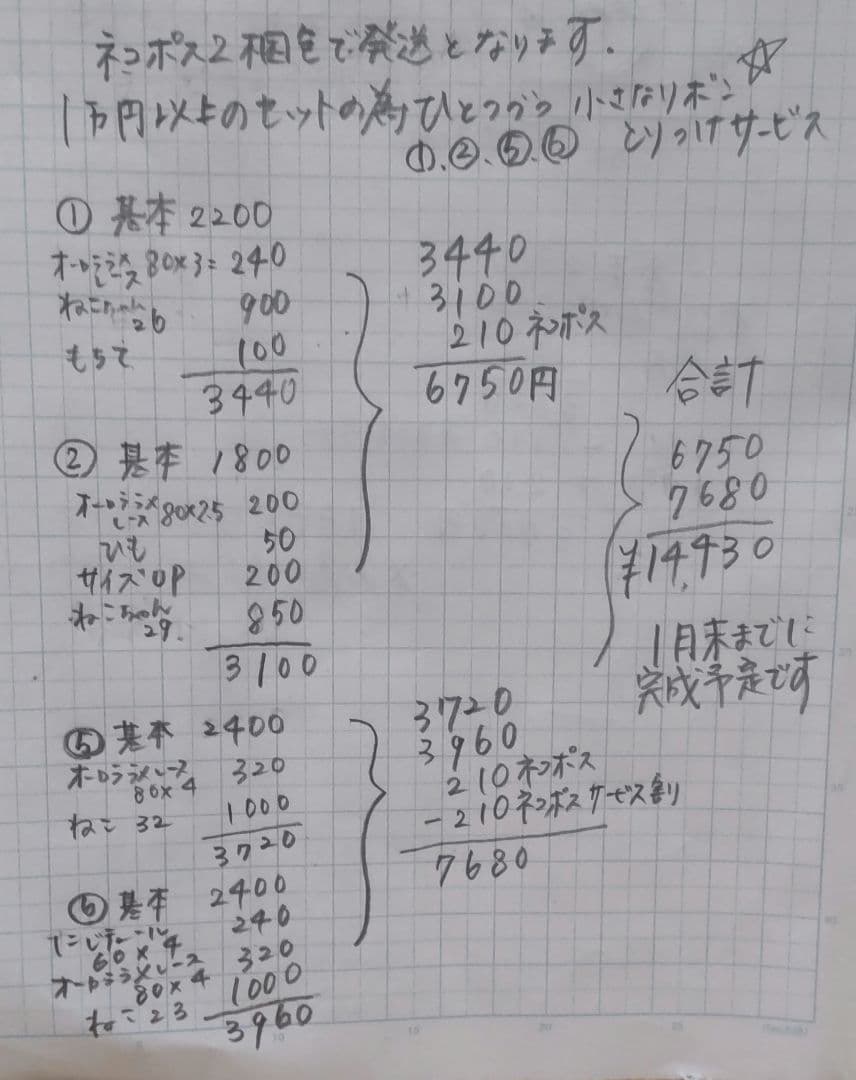 ネコポス2梱包で発送となります.
1万円以上のセットの為、ひとつづつ 小さなリボン☆
①.②.⑤.⑥ とりつけサービス
① 基本 2200
オーロララメレース 80×3= 240
ねこちゃん26 900
もちて 100
3440
3440
3100
210 ネコポス
6750円
② 基本 1800
オーロララメレース 80×2.5 200
ひも 50
サイズUP 200
ねこちゃん29. 850
3100
合計
6750
7680
¥14,430
1月末までに
完成予定です
⑤ 基本 2400
オーロララメレース 80×4 320
ねこ 32 1000
3720
⑥ 基本 2400
60×4 240
オーロララメレース 80×4 320
ねこ 23 1000
3960
3720
3960
210 ネコポス
-210 ネコポスサービス割り
7680